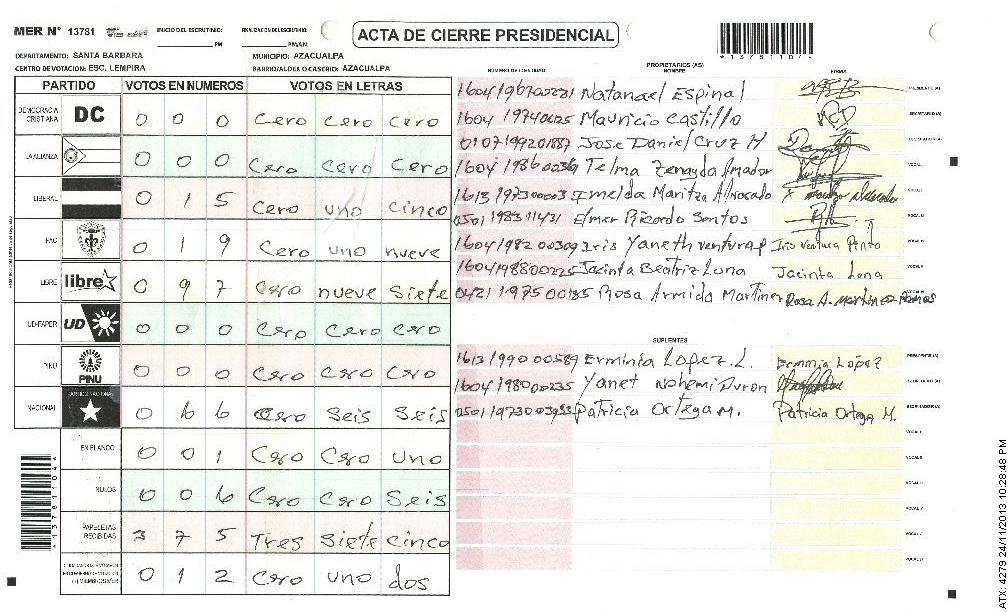 MER N° 13781
INICIO DEL ESCRUTINIO:
PM
FINALIZACION DEL ESCRUTINIO:
PM/AM
ACTA DE CIERRE PRESIDENCIAL
DEPARTAMENTO: SANTA BARBARA
MUNICIPIO: AZACUALPA
CENTRO DE VOTACION: ESC. LEMPIRA
BARRIO/ALDEA O CASERIO: AZACUALPA
PARTIDO VOTOS EN NUMEROS VOTOS EN LETRAS
DEMOCRACIA CRISTIANA DC 0 0 0 Cero Cero Cero
LA ALIANZA 0 0 0 Cero Cero Cero
LIBERAL 0 1 5 Cero uno cinco
PAC 0 1 9 Cero uno nueve
LIBRE libre 0 9 7 Cero nueve Siete
UD-FAPER UD 0 0 0 Cero Cero Cero
PINU PINU 0 0 0 Cero Cero Cero
NACIONAL 0 6 6 Cero Seis Seis
EN BLANCO 0 0 1 Cero Cero uno
NULOS 0 0 6 Cero Cero Seis
PAPELETAS RECIBIDAS 3 7 5 Tres Siete cinco
(+) MIEMBROS MER 0 1 2 Cero uno dos
PROPIETARIOS (AS)
NUMERO DE IDENTIDAD NOMBRE FIRMA
Natanael Espinal PRESIDENTE (A)
Mauricio Castillo SECRETARIO (A)
Jose Daniel Cruz M
1604 1986 00369 Telma Zenayda Amador VOCAL
1613 1973 00003 Imelda Maritza Alvarado
0501 1983 11431 Elmer Ricardo Santos
1604 1982 00309 Iris Yaneth Ventura P Iris Ventura Pinto
1604 1988 00225 Jacinta Beatriz Luna Jacinta Luna
0421 1975 00135 Rosa Armida Martinez Rosa A. Martinez Ramos
SUPLENTES
1613 1990 00589 Erminia Lopez. L. Erminia López PRESIDENTE (A)
1604 1980 00235 Yanet Nohemi Duron SECRETARIO (A)
Patricia Ortega M. Patricia Ortega M. ESCRUTADOR (A)
VOCAL I
VOCAL II
VOCAL III
VOCAL IV
VOCAL V
VOCAL VI
ATX: 4279 24/11/2013 10:28:48 PM